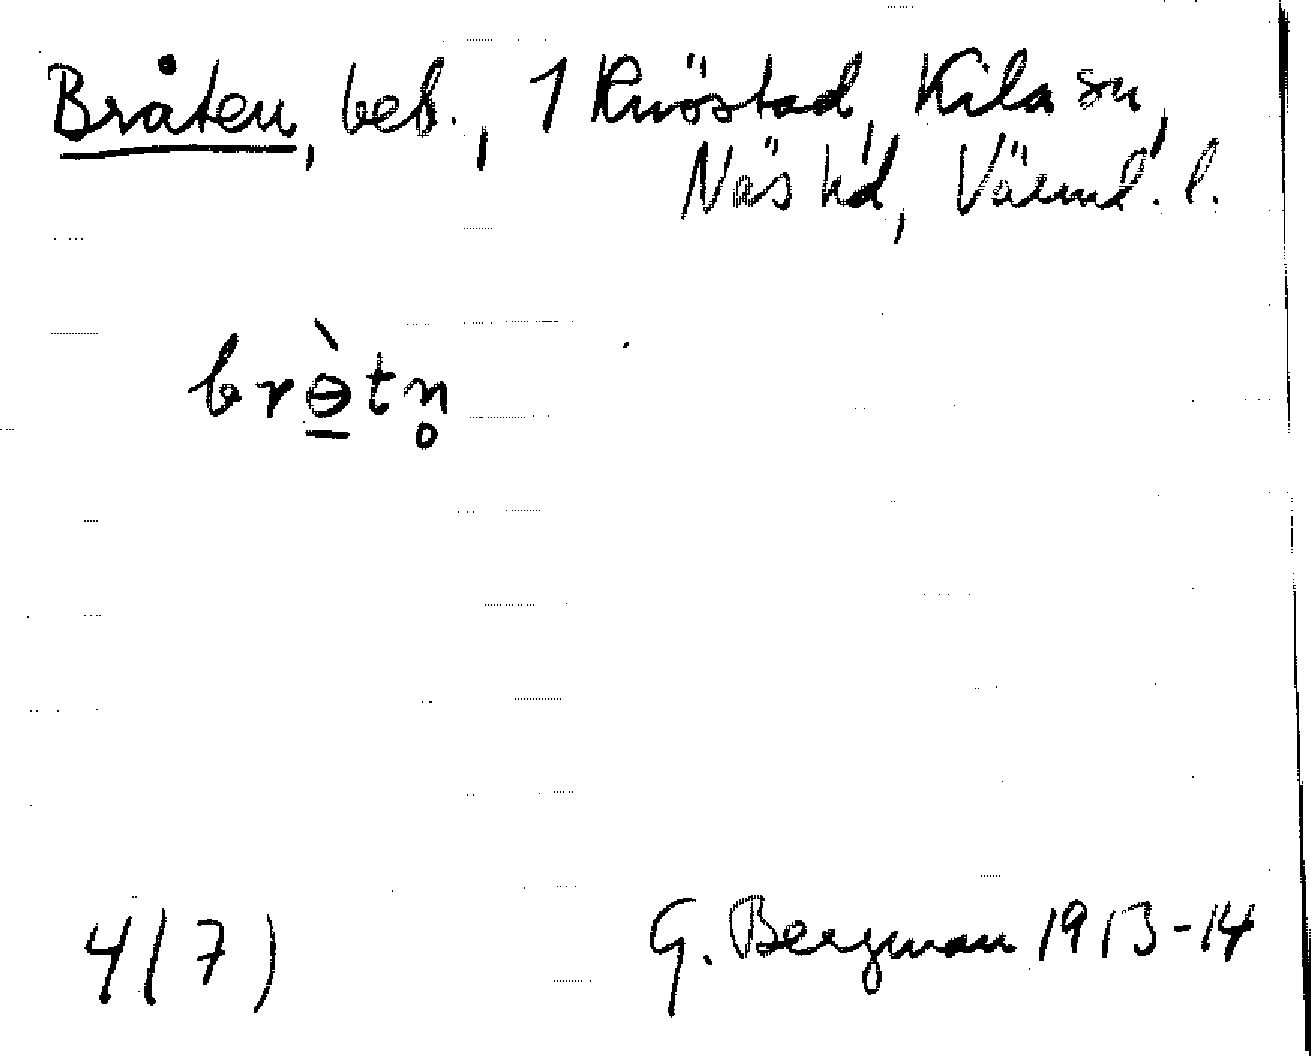 Bråten, beb., 1 Knöstad, Kila sn,
Näs hd, Värml. l.
brɵ̲̀tn̥
4(7)
G. Bergman 1913-14